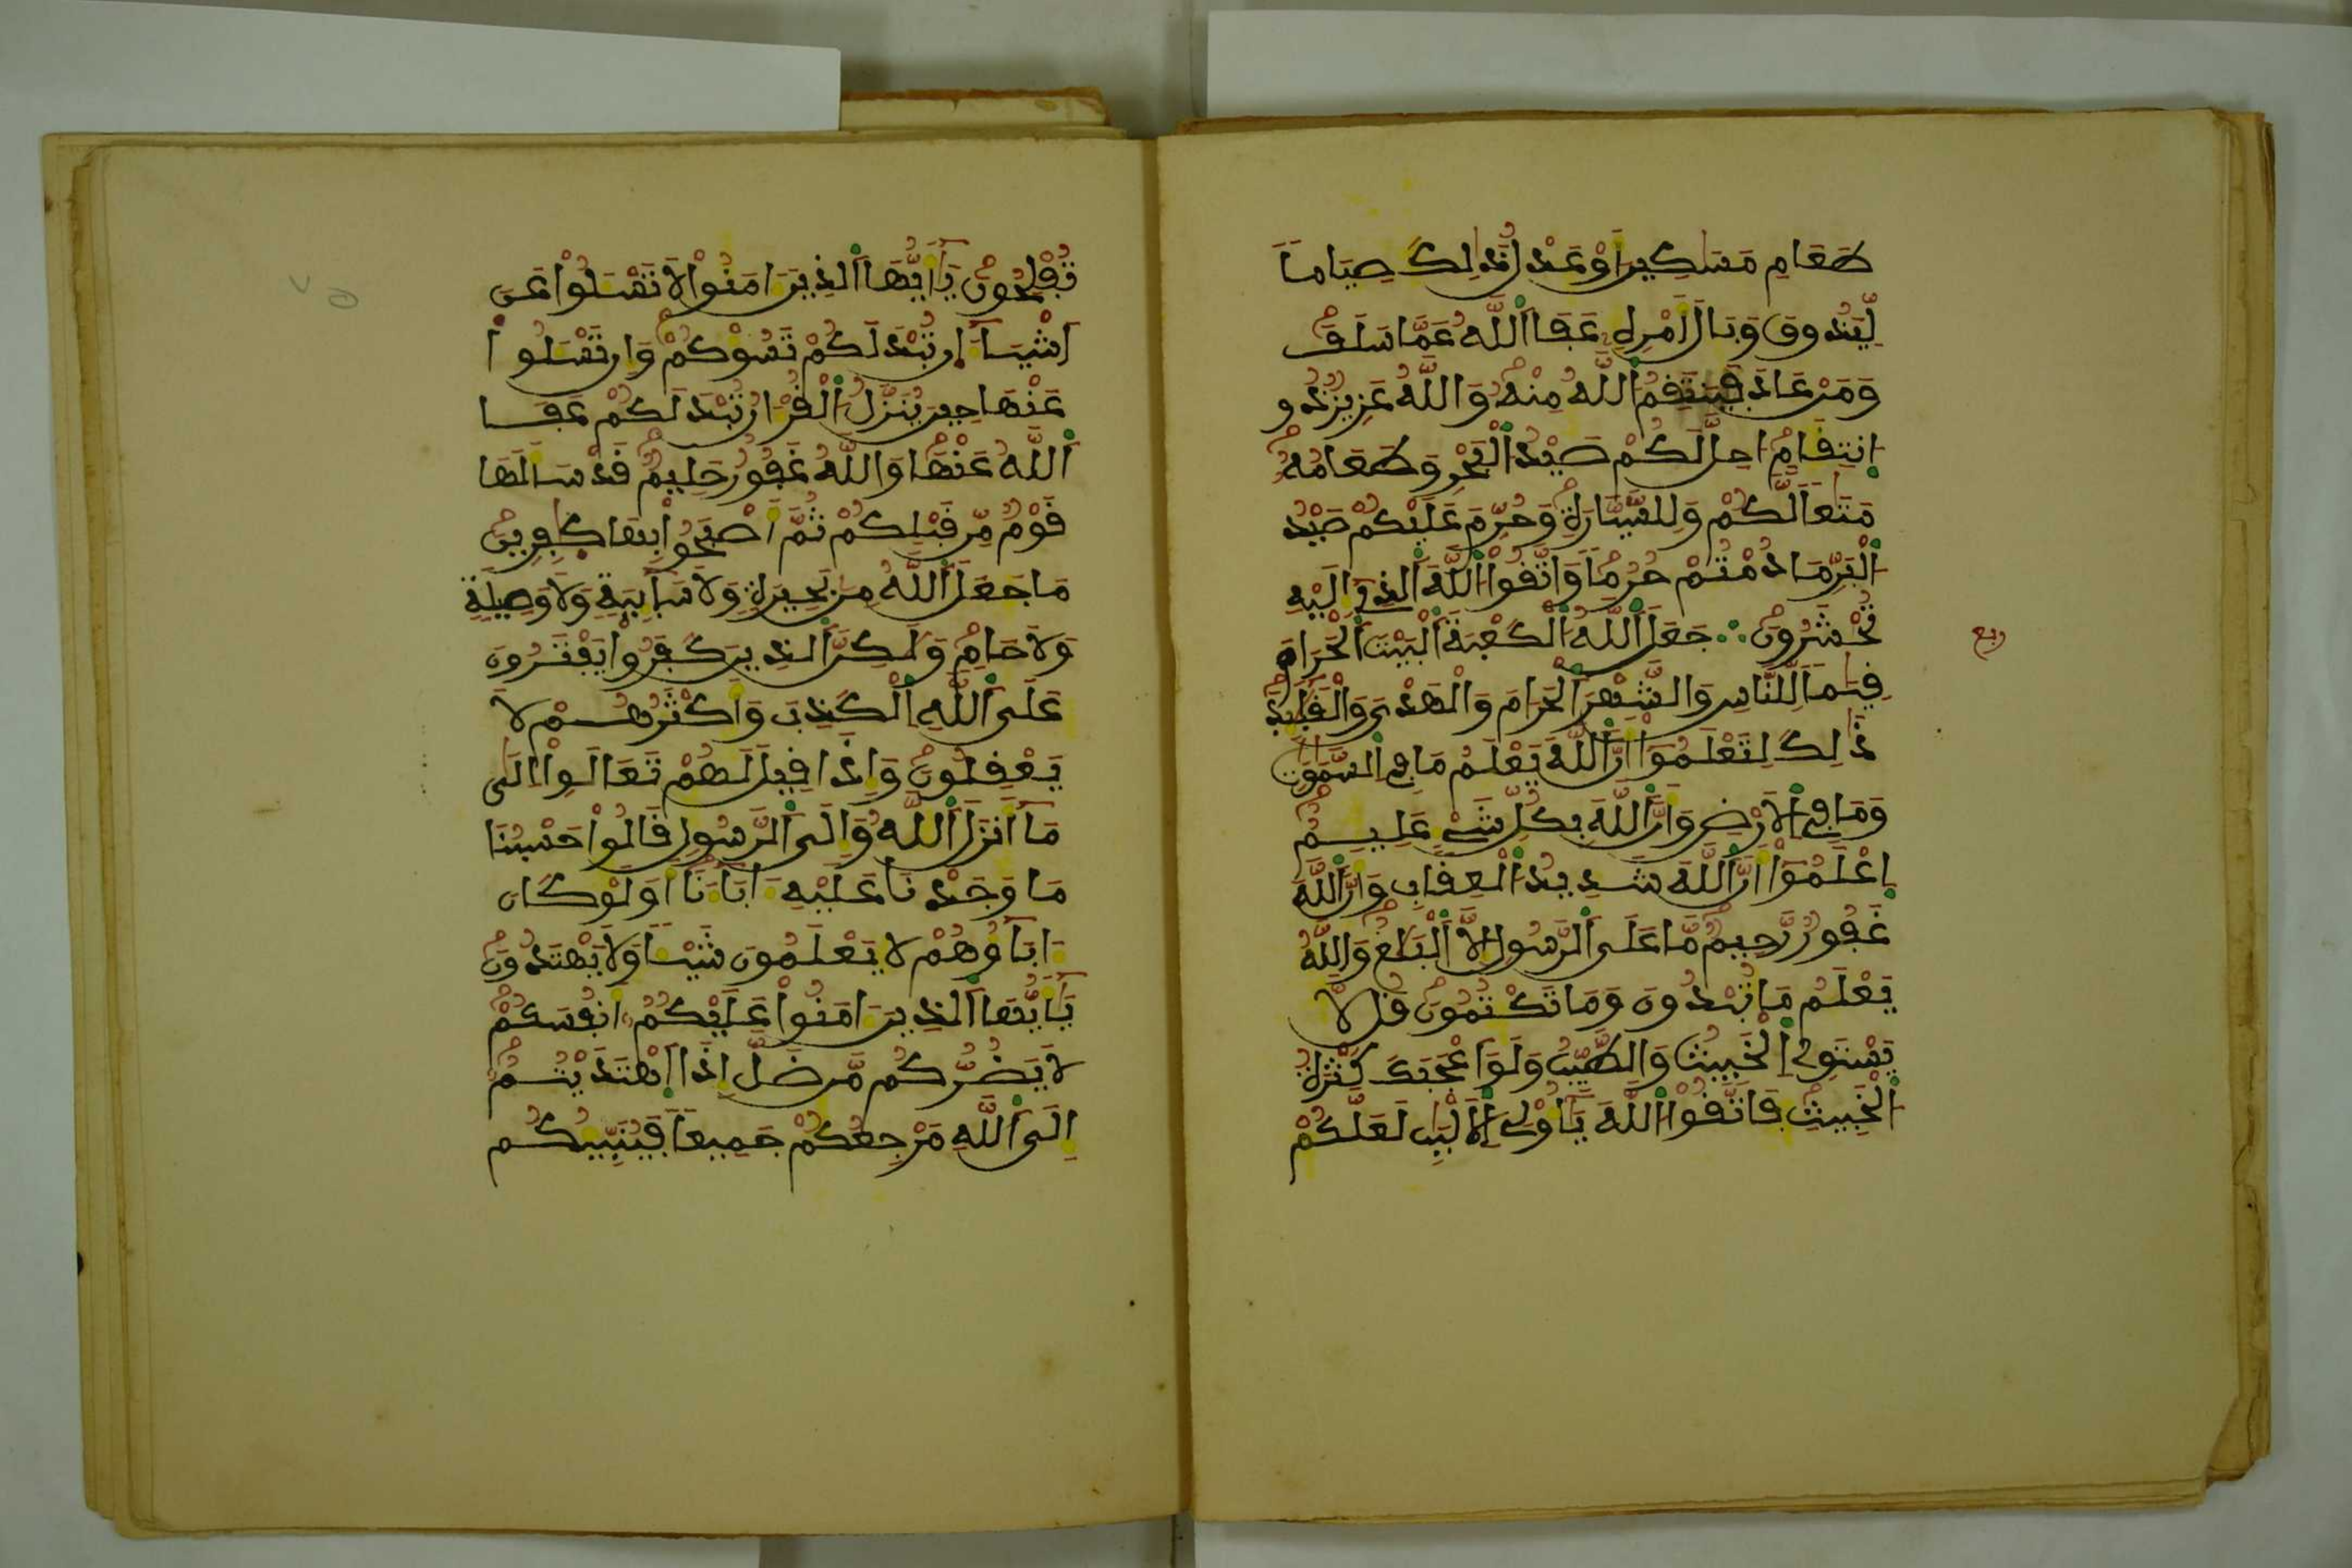 طَعَامِ مَسَٰكِينَ أَوْ عَدْلُ ذَٰلِكَ صِيَاماً
لِّيَذُوقَ وَبَالَ أَمْرِهِۦ عَفَا اَ۬للَّهُ عَمَّا سَلَفَ
وَمَنْ عَادَ فَيَنتَقِمُ اُ۬للَّهُ مِنْهُ وَاللَّهُ عَزِيزٌ ذُو
اِنتِقَامٍ احِلَّ لَكُمْ صَيْدُ اُ۬لْبَحْرِ وَطَعَامُهُۥ
مَتَٰعاً لَّكُمْ وَلِلسَّيَّارَةِ وَحُرِّمَ عَلَيْكُمْ صَيْدُ
اُ۬لْبَرِّ مَا دُمْتُمْ حُرُماً وَاتَّقُوا۟ اُ۬للَّهَ اَ۬لذِےٓ إِلَيْهِ
تُحْشَرُونَ ∴ جَعَلَ اَ۬للَّهُ اُ۬لْكَعْبَةَ اَ۬لْبَيْتَ اَ۬لْحَرَامَ
ربع
قِيَٰماً لِّلنَّاسِ وَالشَّهْرَ اَ۬لْحَرَامَ وَالْهَدْيَ وَالْقَلَٰٓئِدَ
ذَٰلِكَ لِتَعْلَمُوٓا۟ أَنَّ اَ۬للَّهَ يَعْلَمُ مَا فِے اِ۬لسَّمَٰوَٰتِ
وَمَا فِے اِ۬لْأَرْضِ وَأَنَّ اَ۬للَّهَ بِكُلِّ شَےْءٍ عَلِيمٌ
اِعْلَمُوٓا۟ أَنَّ اَ۬للَّهَ شَدِيدُ اُ۬لْعِقَابِ وَأَنَّ اَ۬للَّهَ
غَفُورٌ رَّحِيمٌ مَّا عَلَى اَ۬لرَّسُولِ إِلَّا اَ۬لْبَلَٰغُ وَاللَّهُ
يَعْلَمُ مَا تُبْدُونَ وَمَا تَكْتُمُونَ قُل لَّا
يَسْتَوِے اِ۬لْخَبِيثُ وَالطَّيِّبُ وَلَوَ اَعْجَبَكَ كَثْرَةُ
اُ۬لْخَبِيثِ فَاتَّقُوا۟ اُ۬للَّهَ يَٰٓأُوْلِے اِ۬لْأَلْبَٰبِ لَعَلَّكُمْ
تُفْلِحُونَ يَٰٓأَيُّهَا اَ۬لذِينَ ءَامَنُوا۟ لَا تَسْـَٔلُوا۟ عَنَ
اَشْيَآءَ ان تُبْدَ لَكُمْ تَسُؤْكُمْ وَإِن تَسْـَٔلُوا۟
عَنْهَا حِينَ يُنَزَّلُ اُ۬لْقُرْءَانُ تُبْدَ لَكُمْ عَفَا
اَ۬للَّهُ عَنْهَا وَاللَّهُ غَفُورٌ حَلِيمٌ قَدْ سَأَلَهَا
قَوْمٌ مِّن قَبْلِكُمْ ثُمَّ أَصْبَحُوا۟ بِهَا كَٰفِرِينَ
مَا جَعَلَ اَ۬للَّهُ مِنۢ بَحِيرَةٍ وَلَا سَآئِبَةٍ وَلَا وَصِيلَةٍ
وَلَا حَامٍ وَلَٰكِنَّ اَ۬لذِينَ كَفَرُوا۟ يَفْتَرُونَ
عَلَى اَ۬للَّهِ اِ۬لْكَذِبَ وَأَكْثَرُهُمْ لَا
يَعْقِلُونَ وَإِذَا قِيلَ لَهُمْ تَعَالَوِا۟ الَىٰ
مَآ أَنزَلَ اَ۬للَّهُ وَإِلَى اَ۬لرَّسُولِ قَالُوا۟ حَسْبُنَا
مَا وَجَدْنَا عَلَيْهِ ءَابَآءَنَآ أَوَلَوْ كَانَ
ءَابَآؤُهُمْ لَا يَعْلَمُونَ شَيْـٔاً وَلَا يَهْتَدُونَ
يَٰٓأَيُّهَا اَ۬لذِينَ ءَامَنُوا۟ عَلَيْكُمُۥٓ أَنفُسَكُمْ
لَا يَضُرُّكُم مَّن ضَلَّ إِذَا اَ۪هْتَدَيْتُمُۥٓ
إِلَى اَ۬للَّهِ مَرْجِعُكُمْ جَمِيعاً فَيُنَبِّئُكُم